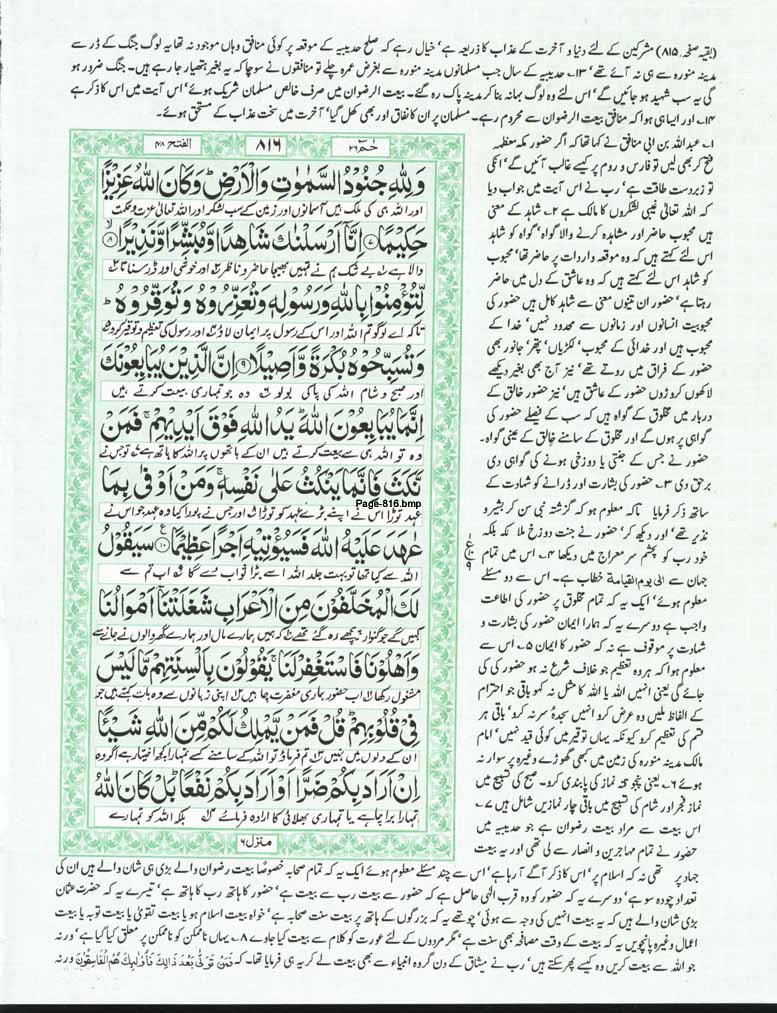 (بقیہ صفحہ ۸۱۵) مشرکین کے لئے دنیا و آخرت کے عذاب کا ذریعہ ہے' خیال رہے کہ صلح حدیبیہ کے موقعہ پر کوئی منافق وہاں موجود نہ تھا یہ لوگ جنگ کے ڈر سے
مدینہ منورہ سے ہی نہ آئے تھے' ۱۳؎ حدیبیہ کے سال جب مسلمانوں مدینہ منورہ سے بغرض عمرہ چلے تو منافقوں نے سوچا کہ یہ بغیر ہتھیار جا رہے ہیں۔ جنگ ضرور ہو
گی یہ سب شہید ہو جائیں گے' اس لئے وہ لوگ بہانہ بنا کر مدینہ پاک رہ گئے۔ بیعت الرضوان میں صرف خالص مسلمان شریک ہوئے' اس آیت میں اس کا ذکر ہے
۱۴؎ اور ایسا ہی ہوا کہ منافق بیعت الرضوان سے محروم رہے۔ مسلمان پر ان کا نفاق اور بھی کھل گیا' آخرت میں سخت عذاب کے مستحق ہوئے۔
حٰمٓ ۲۶
۸۱۶
الفتح ۴۸
وَلِلّٰهِ جُنُوْدُ السَّمٰوٰتِ وَالْاَرْضِ وَكَانَ اللّٰهُ عَزِيْزًا
اور اللہ ہی کی ملک ہیں آسمانوں اور زمین کے سب لشکر اور اللہ تعالٰی عزت و حکمت
حَكِيْمًا ۷ اِنَّاۤ اَرْسَلْنٰكَ شَاهِدًا وَّمُبَشِّرًا وَّنَذِيْرًا ۸
والا ہے بے شک ہم نے تمہیں بھیجا حاضر و ناظر اور خوشی اور ڈر سناتا
لِّتُؤْمِنُوْا بِاللّٰهِ وَرَسُوْلِهٖ وَتُعَزِّرُوْهُ وَتُوَقِّرُوْهُ ؕ
تاکہ اے لوگو تم اللہ اور اس کے رسول پر ایمان لاؤ اور رسول کی تعظیم و توقیر کرو
وَتُسَبِّحُوْهُ بُكْرَةً وَّاَصِيْلًا ۹ اِنَّ الَّذِيْنَ يُبَايِعُوْنَكَ
اور صبح و شام اللہ کی پاکی بولو وہ جو تمہاری بیعت کرتے ہیں
اِنَّمَا يُبَايِعُوْنَ اللّٰهَ ؕ يَدُ اللّٰهِ فَوْقَ اَيْدِيْهِمْ ۚ فَمَنْ
وہ تو اللہ ہی سے بیعت کرتے ہیں ان کے ہاتھوں پر اللہ کا ہاتھ ہے تو جس نے
نَّكَثَ فَاِنَّمَا يَنْكُثُ عَلٰى نَفْسِهٖ ۚ وَمَنْ اَوْفٰى بِمَا
Page-816.bmp
عہد توڑا اس نے اپنے بڑے عہد کو توڑا اور جس نے پورا کیا وہ عہد جو اس نے
عٰهَدَ عَلَيْهُ اللّٰهَ فَسَيُؤْتِيْهِ اَجْرًا عَظِيْمًا ۱۰ سَيَقُوْلُ
اللہ سے کیا تھا تو بہت جلد اللہ اسے بڑا ثواب دے گا اب تم سے
لَكَ الْمُخَلَّفُوْنَ مِنَ الْاَعْرَابِ شَغَلَتْنَاۤ اَمْوَالُنَا
کہیں گے جو گنوار پیچھے رہ گئے تھے کہ ہمیں ہمارے مال اور ہمارے گھر والوں نے جانے سے
وَاَهْلُوْنَا فَاسْتَغْفِرْ لَنَا ۚ يَقُوْلُوْنَ بِاَلْسِنَتِهِمْ مَّا لَيْسَ
مشغول رکھا اب حضور ہماری مغفرت چاہیں اپنی زبانوں سے وہ بات کہتے ہیں جو
فِيْ قُلُوْبِهِمْ ؕ قُلْ فَمَنْ يَّمْلِكُ لَكُمْ مِّنَ اللّٰهِ شَيْـًٔا
ان کے دلوں میں نہیں تم فرماؤ تو اللہ کے سامنے کسے تمہارا کچھ اختیار ہے اگر وہ
اِنْ اَرَادَ بِكُمْ ضَرًّا اَوْ اَرَادَ بِكُمْ نَفْعًا ؕ بَلْ كَانَ اللّٰهُ
تمہارا برا چاہے یا تمہاری بھلائی کا ارادہ فرمائے بلکہ اللہ کو تمہارے
منزل ۶
۱؎ عبداللہ بن ابی منافق نے کہا تھا کہ اگر حضور مکہ معظمہ
فتح کر بھی لیں تو فارس و روم پر کیسے غالب آئیں گے' انکی
تو زبردست طاقت ہے' رب نے اس آیت میں جواب دیا
کہ اللہ تعالٰی غیبی لشکروں کا مالک ہے ۲؎ شاہد کے معنی
ہیں محبوب حاضر اور مشاہدہ کرنے والا گواہ' گواہ کو شاہد
اس لئے کہتے ہیں کہ وہ موقعہ واردات پر حاضر تھا' محبوب
کو شاہد اس لئے کہتے ہیں کہ وہ عاشق کے دل میں حاضر
رہتا ہے' حضور ان تینوں معنی سے شاہد کامل ہیں حضور کی
محبوبیت انسانوں اور زمانوں سے محدود نہیں' خدا کے
محبوب ہیں اور خدائی کے محبوب' لکڑیاں' پتھر' جانور بھی
حضور کے فراق میں روتے تھے' نیز آج بھی بغیر دیکھے
لاکھوں کروڑوں حضور کے عاشق ہیں' نیز حضور خالق کے
دربار میں مخلوق کے گواہ ہیں کہ سب کے فیصلے حضور کی
گواہی پر ہوں گے اور مخلوق کے سامنے خالق کے عینی گواہ۔
حضور نے جس کے جنتی یا دوزخی ہونے کی گواہی دی
برحق دی ۳؎ حضور کی بشارت اور ڈرانے کو شہادت کے
ساتھ ذکر فرمایا تاکہ معلوم ہو کہ گزشتہ نبی سن کر بشیر و
نذیر تھے' اور دیکھ کر' حضور نے جنت دوزخ ملائکہ بلکہ
خود رب کو بچشم سر معراج میں دیکھا ۴؎ اس میں تمام
جہان سے الی یوم القیامۃ خطاب ہے۔ اس سے دو مسئلے
معلوم ہوئے' ایک یہ کہ تمام مخلوق پر حضور کی اطاعت
واجب ہے دوسرے یہ کہ ہمارا ایمان حضور کی بشارت و
شہادت پر موقوف ہے نہ کہ حضور کا ایمان ۵؎ اس سے
معلوم ہوا کہ ہر وہ تعظیم جو خلاف شرع نہ ہو حضور کی کی
جائے گی یعنی انہیں اللہ یا اللہ کا مثل نہ کہو باقی جو احترام
کے الفاظ ملیں وہ عرض کرو انہیں سجدہ سر نہ کرو' باقی ہر
قسم کی تعظیم کرو کیونکہ یہاں توقیر میں کوئی قید نہیں' امام
مالک مدینہ منورہ کی زمین میں بھی گھوڑے وغیرہ پر سوار نہ
ہوئے ۶؎ یعنی پنجوقتہ نماز کی پابندی کرو۔ صبح کی تسبیح میں
نماز فجر اور شام کی تسبیح میں باقی چار نمازیں شامل ہیں ۷؎
اس بیعت سے مراد بیعت رضوان ہے جو حدیبیہ میں
حضور نے تمام مہاجرین و انصار سے لی تھی اور یہ بیعت
جہاد پر تھی نہ کہ اسلام پر' اس کا ذکر آگے آ رہا ہے' اس سے چند مسئلے معلوم ہوئے ایک یہ کہ تمام صحابہ خصوصاً بیعت رضوان والے بڑی ہی شان والے ہیں ان کی
تعداد چودہ سو ہے' دوسرے یہ کہ حضور کو وہ قرب الٰہی حاصل ہے کہ حضور سے بیعت رب سے بیعت ہے' حضور کا ہاتھ رب کا ہاتھ ہے' تیسرے یہ کہ حضرت عثمان
بڑی شان والے ہیں کہ یہ بیعت انہیں کی وجہ سے ہوئی' چوتھے یہ کہ بزرگوں کے ہاتھ پر بیعت سنت صحابہ ہے' خواہ بیعت اسلام ہو یا بیعت تقویٰ یا بیعت توبہ یا بیعت
اعمال وغیرہ پانچویں یہ کہ بیعت کے وقت مصافحہ بھی سنت ہے' مگر مردوں کے لئے عورت کو کلام سے بیعت کیا جاوے ۸؎ یہاں ناممکن کو ناممکن پر معلق کیا گیا ہے' ورنہ
جو اللہ سے بیعت کریں وہ کیسے پھر سکتے ہیں' رب نے میثاق کے دن گروہ انبیاء سے بھی بیعت لے کر یہ ہی فرمایا تھا۔ کہ فَمَنْ تَوَلّٰى بَعْدَ ذَالِكَ فَاُولٰٓئِكَ هُمُ الْفَاسِقُوْنَ ورنہ